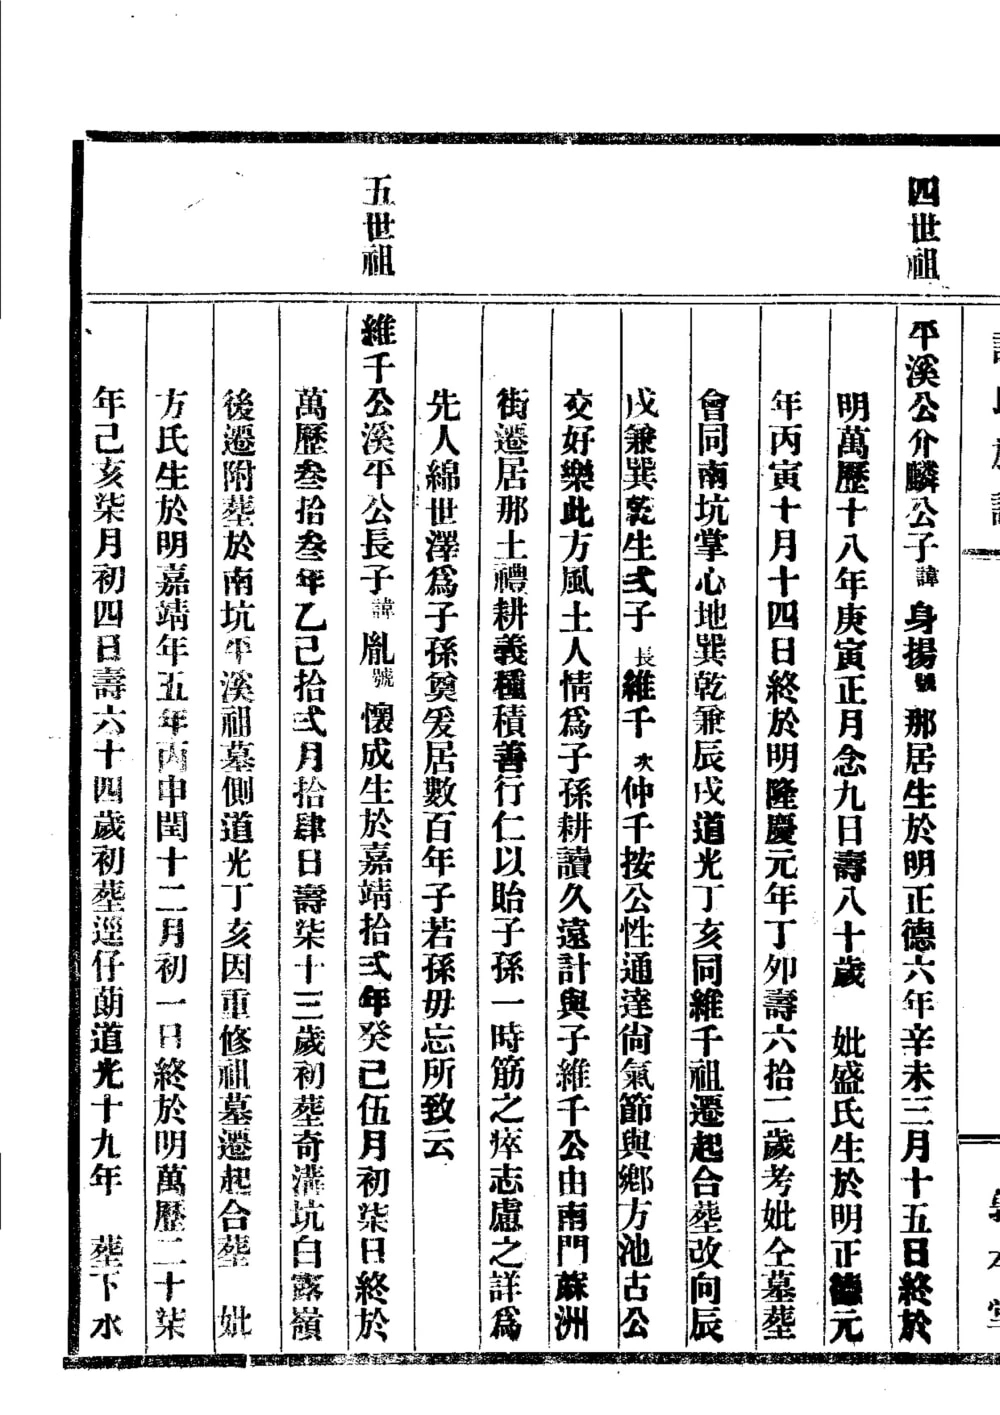 四世祖
平溪公介麟公子諱身揚號那居生於明正德六年辛未三月十五日終於
明萬歷十八年庚寅正月念九日壽八十歲 妣盛氏生於明正德元
年丙寅十月十四日終於明隆慶元年丁卯壽六拾二歲考妣仝墓葬
會同南坑掌心地巽乾兼辰戌道光丁亥同維千祖遷起合葬改向辰
戌兼巽乾生弍子長維千次仲千按公性通達尙氣節與鄉方池古公
交好樂此方風土人情爲子孫耕讀久遠計與子維千公由南門蘇洲
街遷居那土禮耕義種積善行仁以貽子孫一時筋之瘁志慮之詳爲
先人綿世澤爲子孫奠爰居數百年子若孫毋忘所致云
五世祖
維千公溪平公長子諱胤號懷成生於嘉靖拾弍年癸己伍月初柒日終於
萬歷叁拾叁年乙己拾弍月拾肆日壽柒十三歲初葬奇溝坑白露嶺
後遷附葬於南坑平溪祖墓側道光丁亥因重修祖墓遷起合葬 妣
方氏生於明嘉靖年五年丙申閏十二月初一日終於明萬歷二十柒
年己亥柒月初四日壽六十四歲初葬逕仔萠道光十九年 葬下水